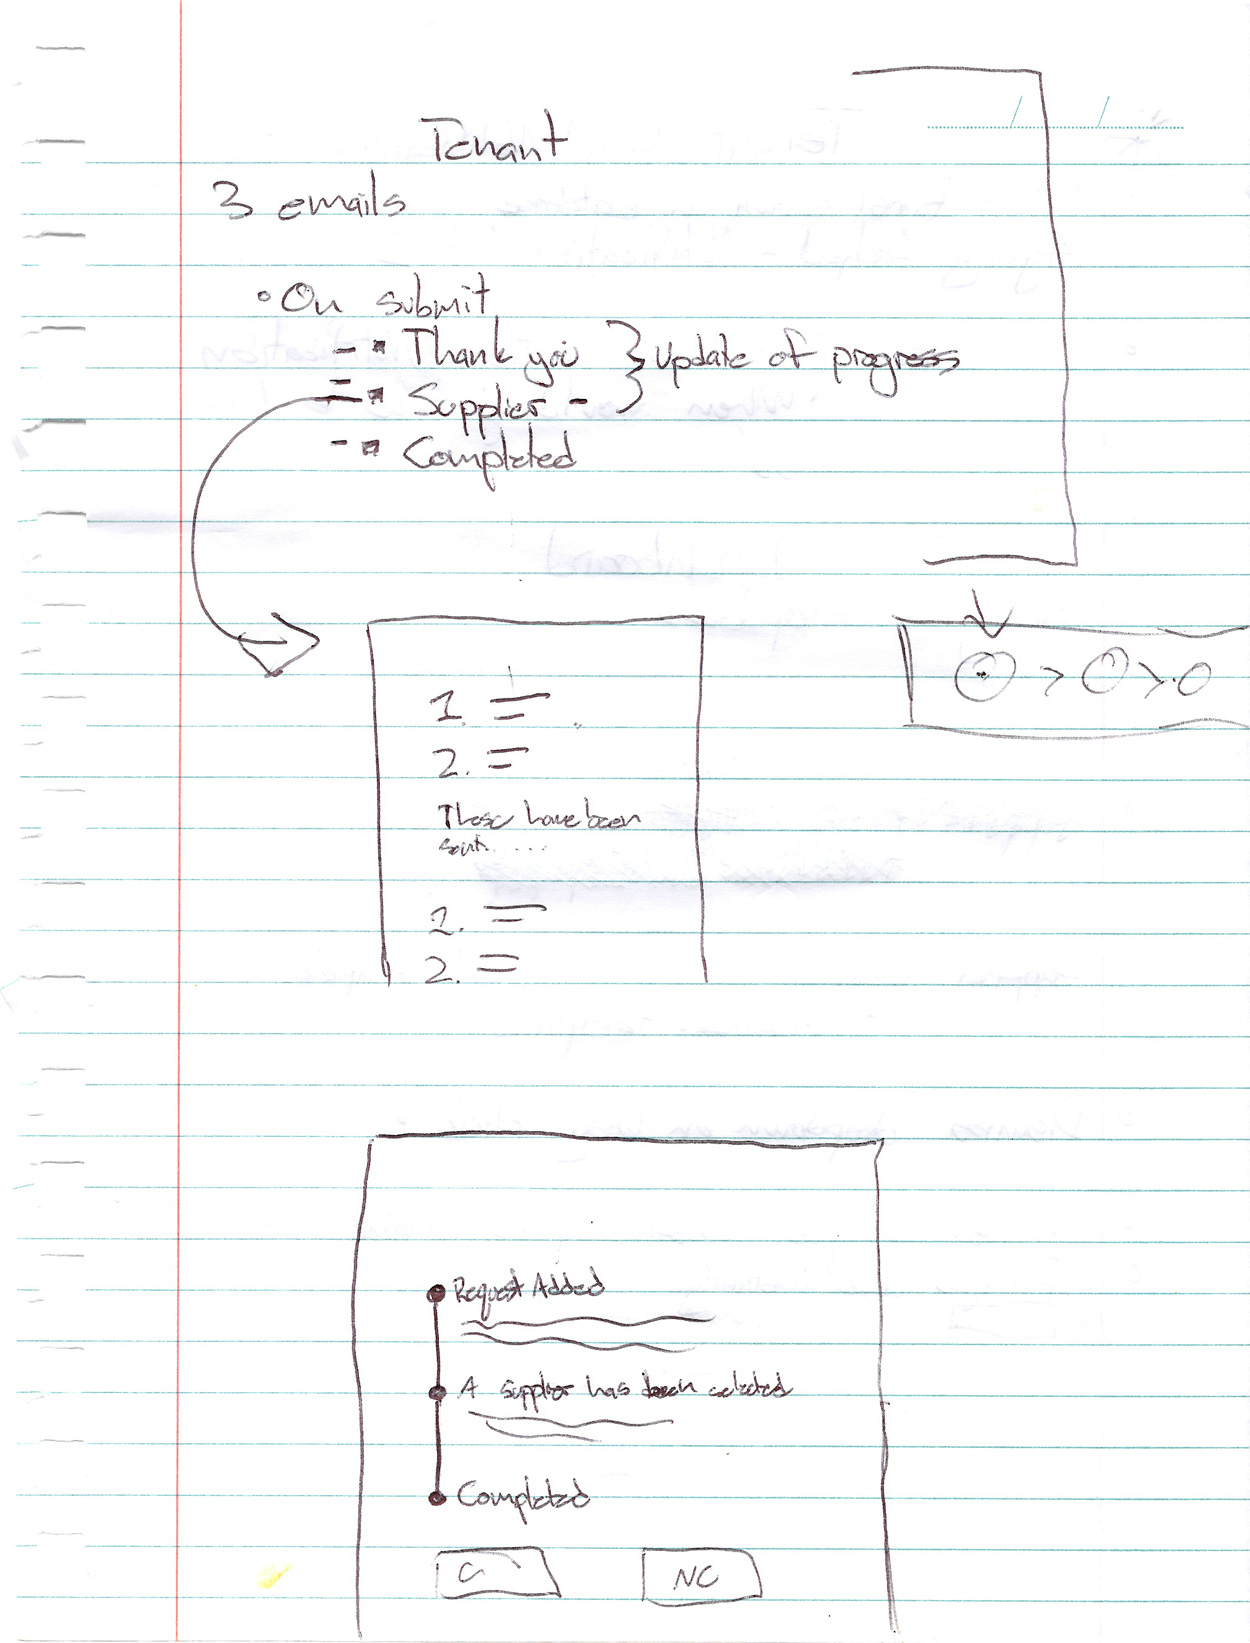 Tenant
3 emails
• On submit
- ▪ Thank you } update of progress
- ▪ Supplier -
- ▪ Completed
1.
2.
These have been
sent. ...
1.
2.
Request Added
A supplier has been selected
Completed
C
NC